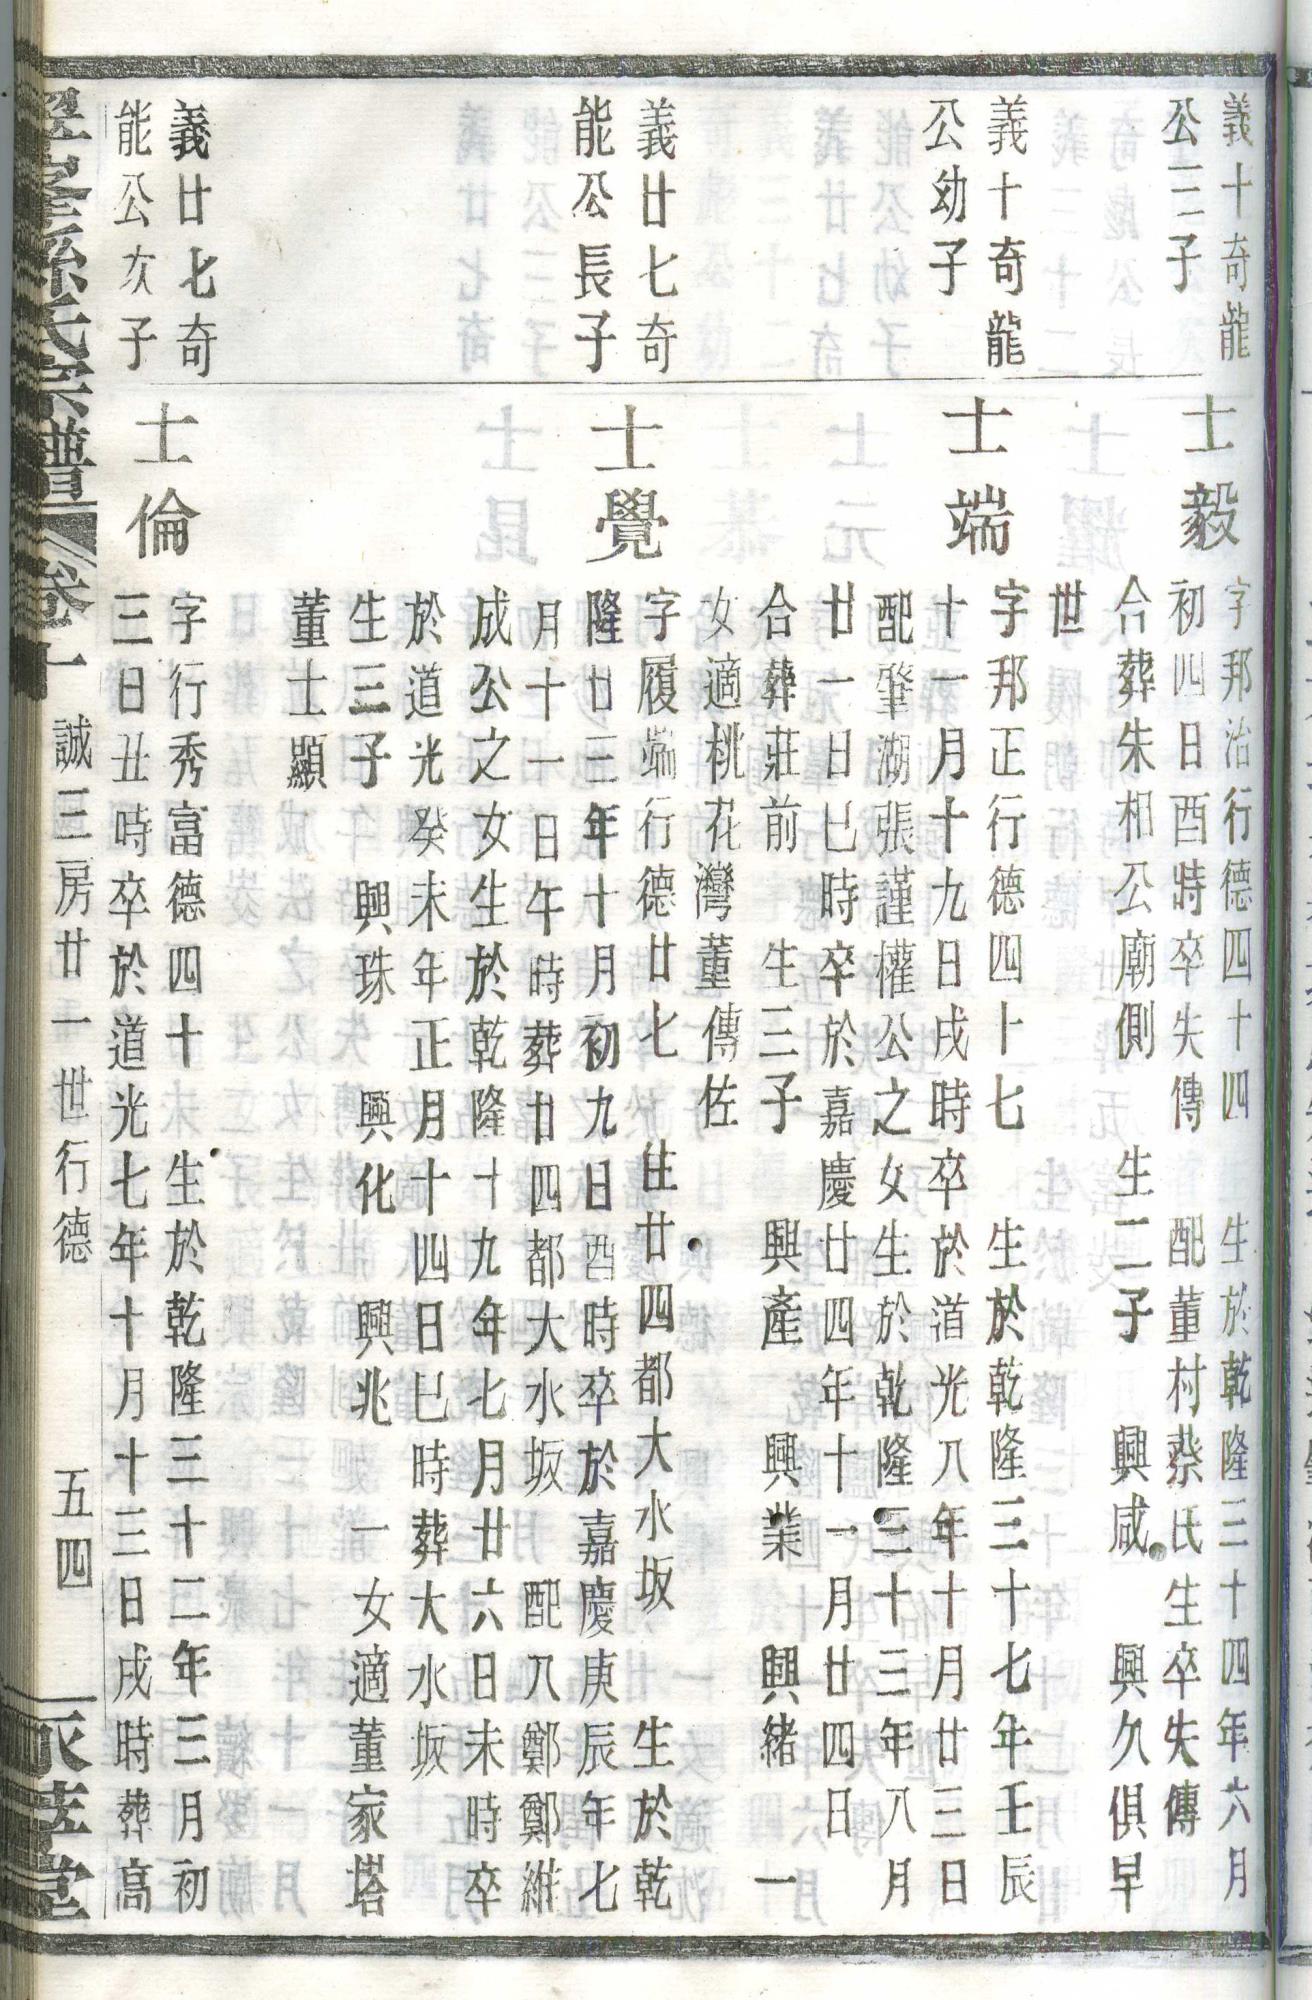 義十奇龍
公三子
士毅
字邦治行德四十四 生於乾隆三十四年六月
初四日酉時卒失傳 配董村蔡氏生卒失傳
合葬朱相公廟側 生二子 興咸 興久俱早
世
義十奇龍
公幼子
士端
字邦正行德四十七 生於乾隆三十七年壬辰
十一月十九日戌時卒於道光八年十月廿三日
配肇湖張謹權公之女生於乾隆三十三年八月
廿一日巳時卒於嘉慶廿四年十一月廿四日
合葬莊前 生三子 興產 興業 興緒 一
女適桃花灣董傳佐
義廿七奇
能公長子
士覺
字履端行德廿七 住廿四都大水坂 生於乾
隆廿三年十月初九日酉時卒於嘉慶庚辰年七
月十一日午時葬廿四都大水坂 配八鄭鄭維
成公之女生於乾隆十九年七月廿六日未時卒
於道光癸未年正月十四日巳時葬大水坂
生三子 興珠 興化 興兆 一女適董家塔
董士顯
義廿七奇
能公次子
士倫
字行秀富德四十 生於乾隆三十二年三月初
三日丑時卒於道光七年十月十三日戌時葬高
孫氏宗譜 卷十 誠三房廿一世行德 五四